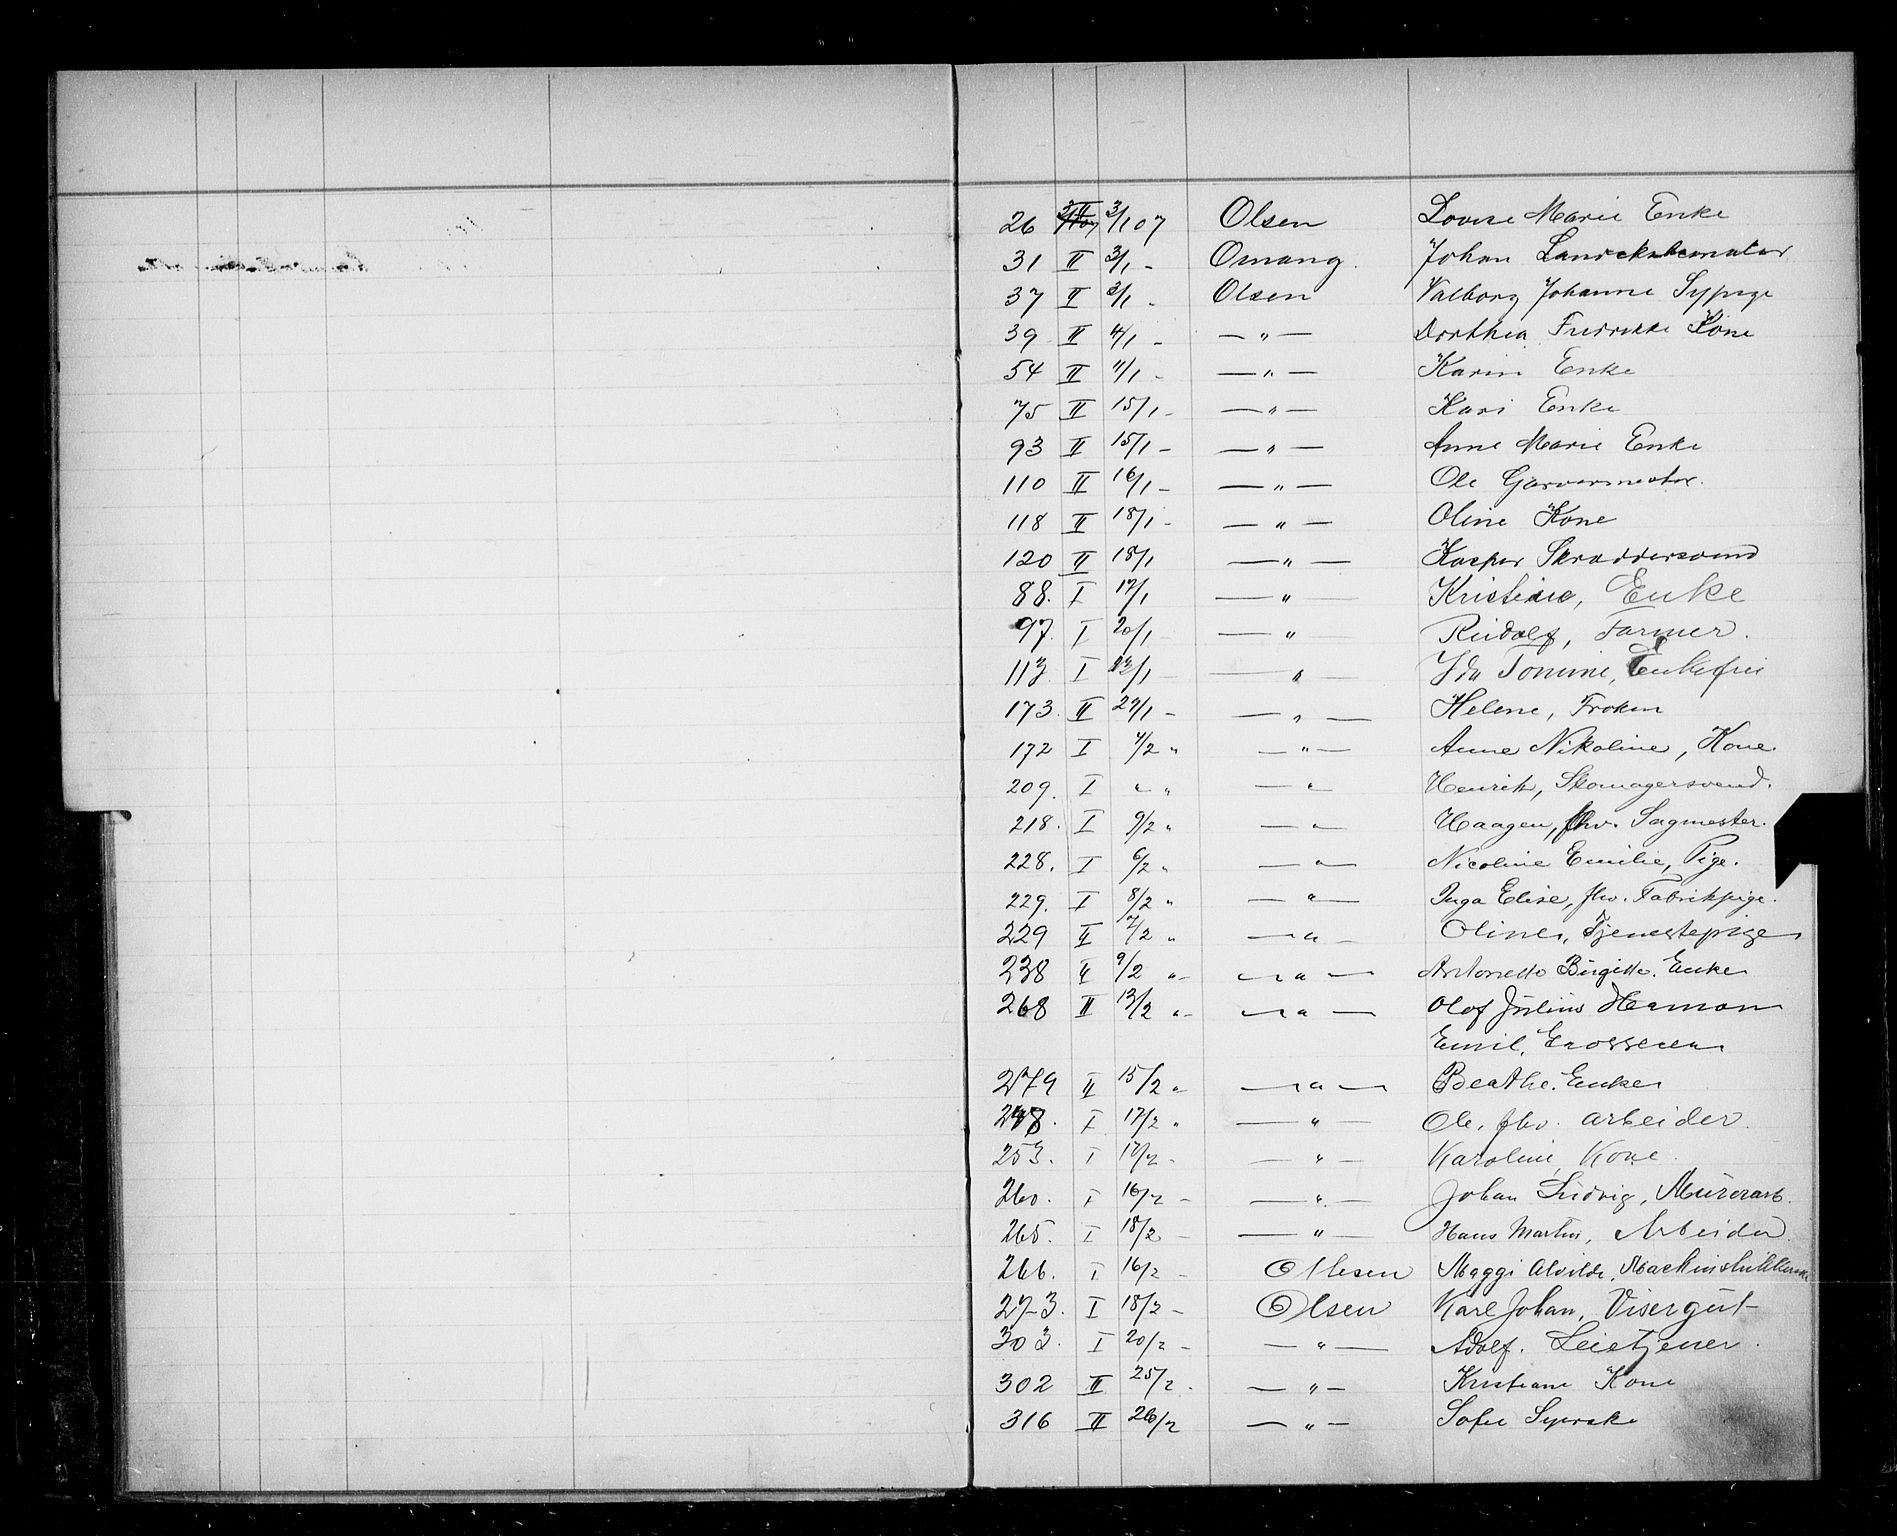 26 II 3/1 07 Olsen Lovise Marie Enke
31 II 3/1 - Omang Johan
37 II 3/1 - Olsen Valborg Johanne Sypige
39 II 4/1 - — " — Dorthea Fredrikke Kone
54 II 11/1 - — " — Karin Enke
75 II 15/1 - — " — Kari Enke
93 II 15/1 - — " — Anne Marie Enke
110 II 16/1 - — " — Ole Garvermester
118 II 18/1 - — " — Oline Kone
120 II 18/1 — " — Kasper Skræddersvend
88. I 17/1 — " — Kristine, Enke
97. I 20/1 — " — Rudolf, Farmer.
113 I 22/1 — " — Ida Tomine, Enkefru
173. II 29/1 - — " — Helene, Frøken
172 I 4/2 " — " — Anne Nikoline, Kone.
209. I " " — " — Henrik, Skomagersvend.
218. I 9/2 " — " — Haagen, fhv. Sagmester.
228. I 6/2 " — " — Nicoline Emilie, Pige.
229. I 8/2 " — " — Inga Elise, fhv. Fabrikpige.
229 II 7/2 " — " — Oline, Tjenestepige
238 II 9/2 " — " — Antonette Birgitte. Enke
268 II 13/2 " — " — Olof Julius Herman
Emil, Grosserer
279 II 15/2 " — " — Beathe. Enke
248. I 17/2 " — " — Ole, fhv. arbeider.
253. I 17/2 - — " — Karoline, Kone.
260. I 16/2 - — " — Johan Ludvig, Murerarb.
265. I 18/2 - — " — Hans Martin, Arbeider
266. I 16/2 - Ollesen Maggi Alvilde,
273. I 18/2 - Olsen Karl Johan, Visergut
303. I 20/2 - — " — Adolf. Leietjener.
302 II 25/2 - — " — Kristiane Kone
316 II 26/2 — " — Sofie Syerske